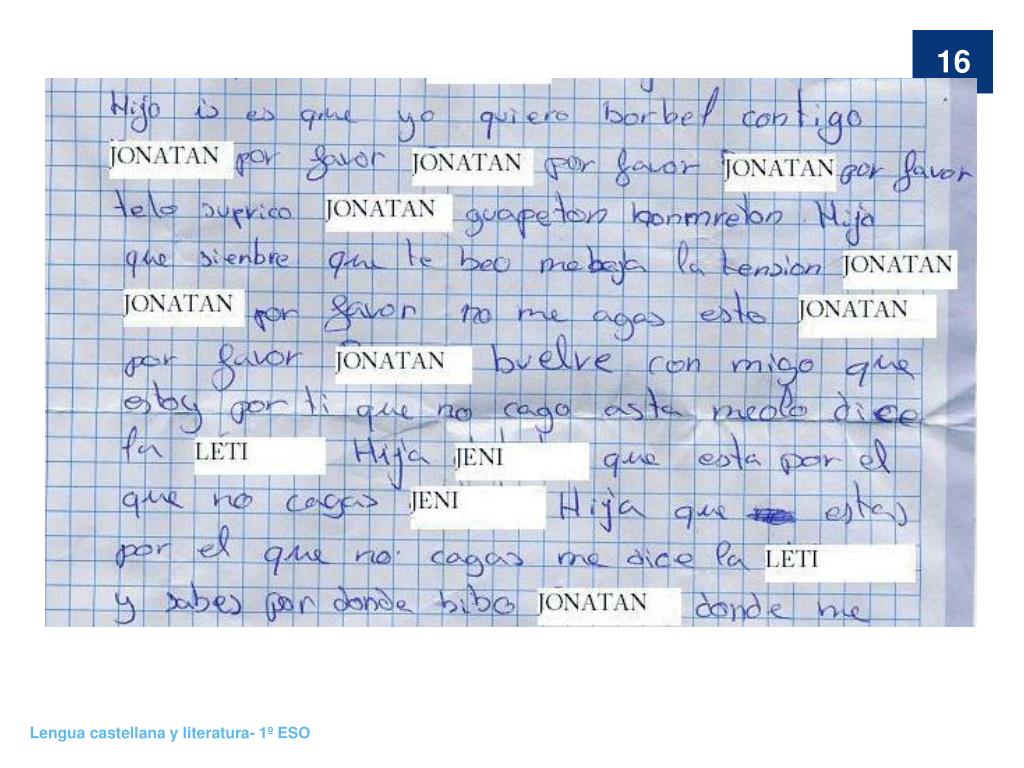 16
Hijo is es que yo quiero borbel contigo
JONATAN por favor JONATAN por favor JONATAN por favor
telo suprico JONATAN guapeton bonmreton Hijo
que sienbre que te beo me baja la tension JONATAN
JONATAN por favor no me agas esto JONATAN
por favor JONATAN buelve con migo que
estoy por ti que no cago asta meolo dice
la LETI Hija JENI que esta por el
que no cagas JENI Hija que estas
por el que no cagas me dice la LETI
y sabes por donde bibo JONATAN donde me
Lengua castellana y literatura- 1º ESO